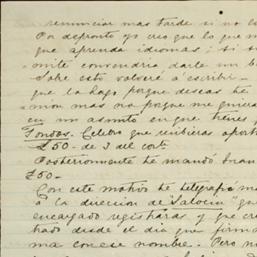 renunciar mas tarde si no co
Por depronto yo creo que lo que m
que aprenda idiomas; si tu
omite convendria darle un b
Sobre esto volveré a escribir
que la hago porque deseas he
mion mas no porque me quiera
en un asunto en que tienes
Fondos. Celebro que recibieras aport
£50- de 3 del cort
Posteriormente he mandó
£50-
Con este motivo he telegrafia
a la direccion de "Salocin" que
encargado registraras y que cre
hado desde el dia que firmó
ma con ese nombre. Pero no